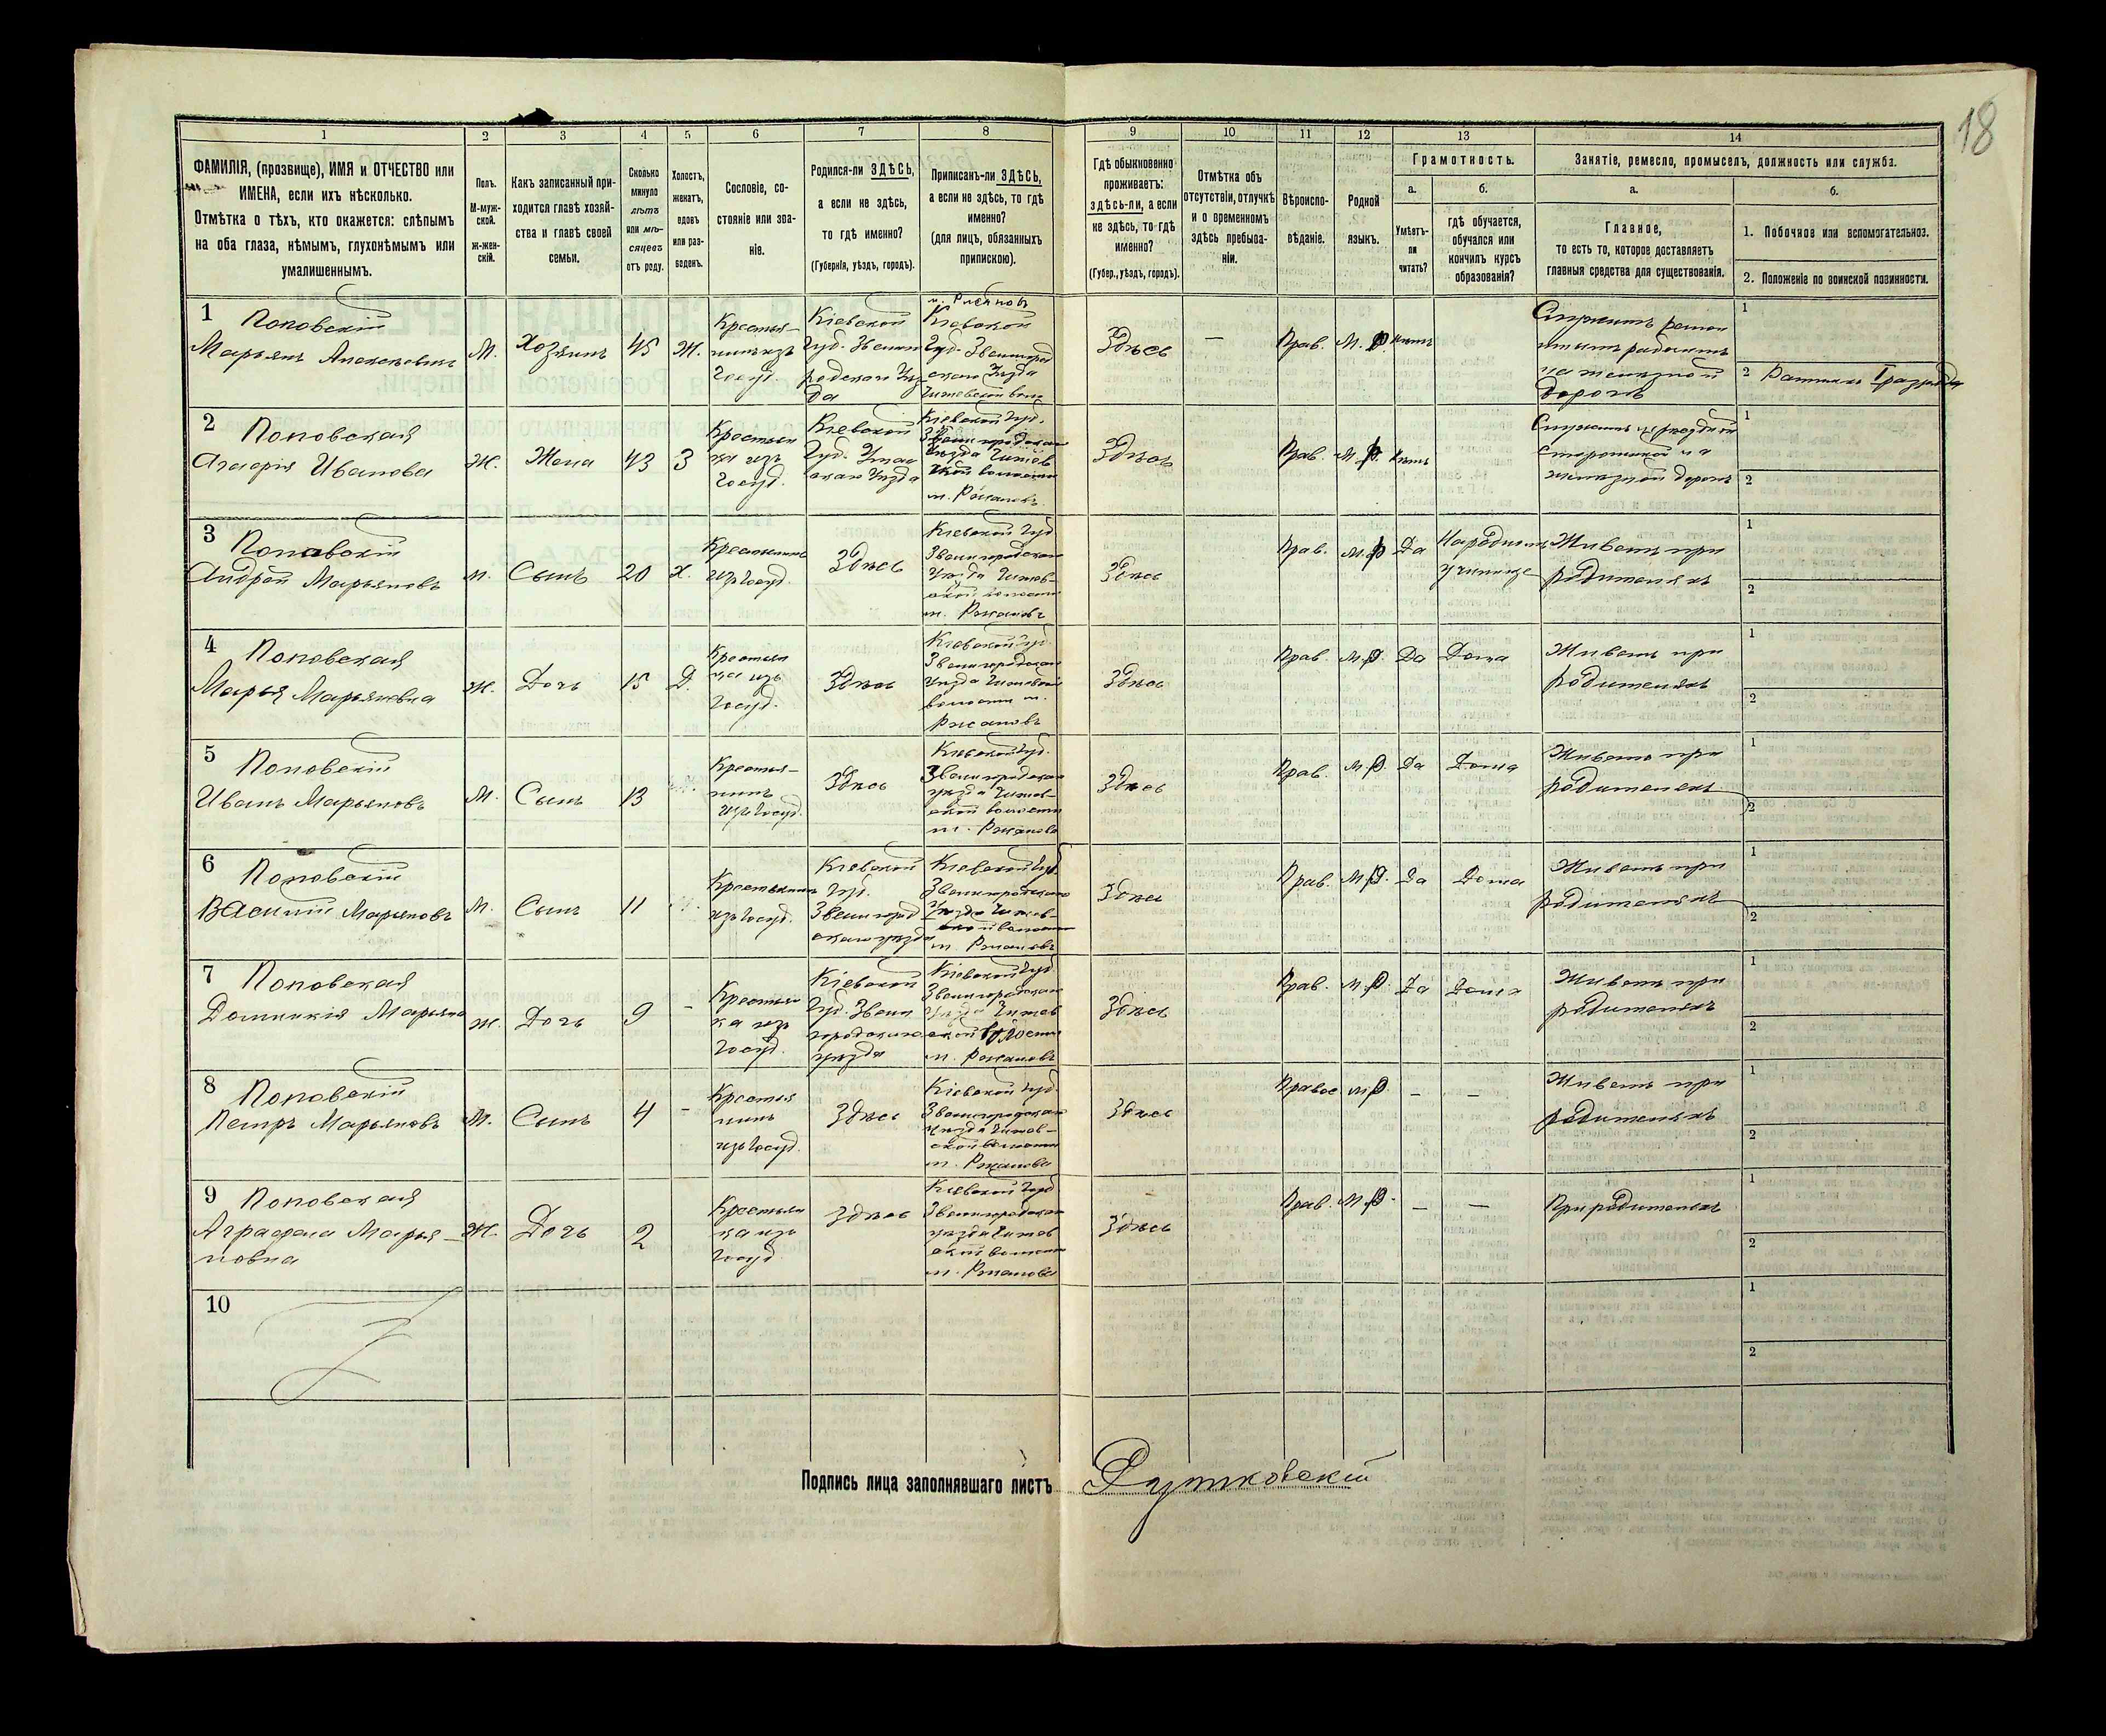 18
1 2 3 4 5 6 7 8 9 10 11 12 13 14
ФАМИЛІЯ, (прозвище), ИМЯ и ОТЧЕСТВО или
ИМЕНА, если ихъ нѣсколько.
Отмѣтка о тѣхъ, кто окажется: слѣпымъ
на оба глаза, нѣмымъ, глухонѣмымъ или
умалишеннымъ.
Полъ.
М-муж-
ской.
ж-жен-
скій.
Какъ записанный при-
ходится главѣ хозяй-
ства и главѣ своей
семьи.
Сколько
минуло
лѣтъ
или мѣ-
сяцевъ
отъ роду.
Холостъ,
женатъ,
вдовъ
или раз-
веденъ.
Сословіе, со-
стояніе или зва-
ніе.
Родился-ли ЗДѢСЬ,
а если не здѣсь,
то гдѣ именно?
(Губернія, уѣздъ, городъ).
Приписанъ-ли ЗДѢСЬ,
а если не здѣсь, то гдѣ
именно?
(для лицъ, обязанныхъ
припискою).
Гдѣ обыкновенно
проживаетъ:
здѣсь-ли, а если
не здѣсь, то гдѣ
именно?
(Губер., уѣздъ, городъ).
Отмѣтка объ
отсутствіи, отлучкѣ
и о временномъ
здѣсь пребыва-
ніи.
Вѣроиспо-
вѣданіе.
Родной
языкъ.
Грамотность.
а.
Умѣетъ-
ли
читать?
б.
гдѣ обучается,
обучался или
кончилъ курсъ
образованія?
Занятіе, ремесло, промыселъ, должность или служба.
а.
Главное,
то есть то, которое доставляетъ
главныя средства для существованія.
б.
1. Побочное или вспомогательноэ.
2. Положеніе по воинской повинности.
1 Поповскій
Марьянъ
М.
Хозяинъ
45
Ж.
Крестья-
нинъ изъ
Госуд.
Кіевской
Губ. Звени
родского Уѣз
да
Кіевской
Губ. Звенигород
скаго Уѣзда
Здѣсь
—
Прав.
М. Р.
Нѣтъ
Служитъ ремон
тнымъ рабочимъ
на желѣзной
дорогѣ
1
2 Ратникъ I разряда
2 Поповская
Иванова
Ж.
Жена
43
З
Крестьян
ка изъ
Госуд.
Кіевской
Губ. Уман
скаго Уѣзда
Кіевской Губ.
Звенигородскаго
Уѣзда
волости
Здѣсь
Прав.
М. Р.
Нѣтъ
Служитъ
Сторожихой на
желѣзной дорогѣ
1
2
3 Поповскій
Андрей Марьяновъ
М.
Сынъ
20
Х.
Крестьянинъ
изъ Госуд.
Здѣсь
Кіевской Губ
Звенигородскаго
Уѣзда
волости
Здѣсь
Прав.
М. Р.
Да
Народномъ
училище
Живетъ при
родителяхъ
1
2
4 Поповская
Марья Марьяновна
Ж.
Дочь
15
Д.
Крестьян
ка изъ
Госуд.
Здѣсь
Кіевской Губ.
Звенигородскаго
Уѣзда
волости
Здѣсь
Прав.
М. Р.
Да
Дома
Живетъ при
родителяхъ
1
2
5 Поповскій
Иванъ Марьяновъ
М.
Сынъ
13
Крестья-
нинъ
изъ Госуд.
Здѣсь
Кіевской Губ.
Звенигородскаго
уѣзда
волости
Здѣсь
Прав.
М. Р.
Да
Дома
Живетъ при
родителяхъ
1
2
6 Поповскій
Василій Марьяновъ
М.
Сынъ
11
Крестьянинъ
изъ Госуд.
Кіевской
Губ.
Звенигород
скаго уѣзда
Кіевской Губ.
Звенигородскаго
Уѣзда
волости
Здѣсь
Прав.
М. Р.
Да
Дома
Живетъ при
родителяхъ
1
2
7 Поповская
Домникія
Ж.
Дочь
9
-
Крестьян
ка изъ
Госуд.
Кіевской
Губ. Звени
городскаго
уѣзда
Кіевской Губ
Звенигородскаго
Уѣзда
волости
Здѣсь
Прав.
М. Р.
Да
Дома
Живетъ при
родителяхъ
1
2
8 Поповскій
Петръ Марьяновъ
М.
Сынъ
4
-
Крестья
нинъ
изъ Госуд.
Здѣсь
Кіевской Губ
Звенигородскаго
Уѣзда
волости
Здѣсь
Правос
М. Р.
— —
Живетъ при
родителяхъ
1
2
9 Поповская
Аграфена Марья-
новна
Ж.
Дочь
2
Крестьян
ка изъ
Госуд
Здѣсь
Кіевской Губ
Звенигородскаго
уѣзда
волости
Здѣсь
Прав.
М. Р.
— —
При родителяхъ
1
2
10
1
2
Подпись лица заполнявшаго листъ